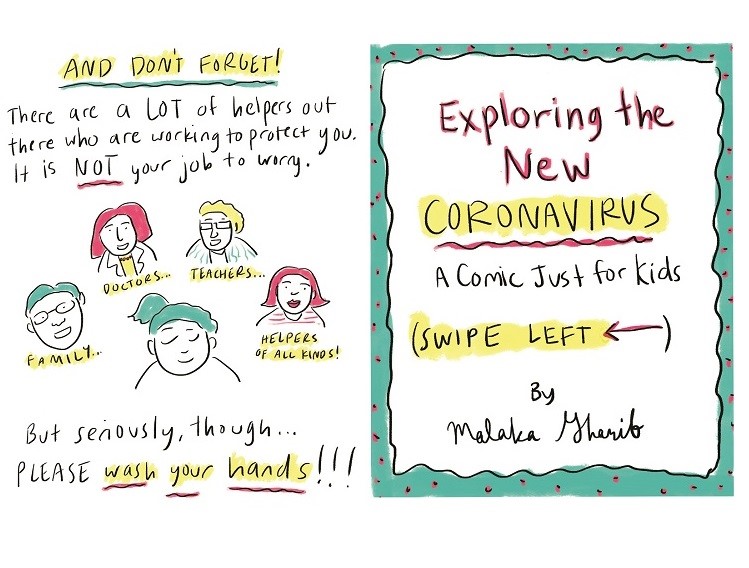 AND DON'T FORGET!
There are a LOT of helpers out
there who are working to protect you.
It is NOT your job to worry.
DOCTORS...
TEACHERS...
FAMILY...
HELPERS
OF ALL KINDS!
But seriously, though...
PLEASE wash your hands!!!
Exploring the
New
CORONAVIRUS
A Comic Just for kids
(SWIPE LEFT ←)
By
Malaka Gharib